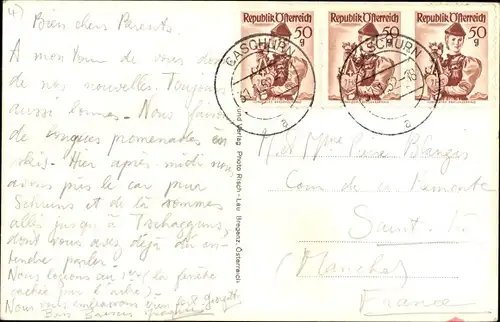 4)
Bien chers Parents.
A mon tour de vous donner
de nos nouvelles. Toujours
aussi bonnes - Nous faisons
de longues promenades en
skis - Hier après-midi nous
avons pris le car pour
Schruns et de là sommes
allés jusqu'à Tschagguns,
dont vous avez déjà du en-
tendre parler -
Nous logeons au 1er (la fenêtre
cachée par l'arbre) -
Nous vous embrassons bien fort
Bons Baisers
und Verlag Photo Risch-Lau, Bregenz, Österreich
Republik Österreich
50
g
Republik Österreich
50
g
Republik Österreich
50
g
GASCHURN
a
GASCHURN
52-16
a
M. et Mme Pierre
Cour de la
Saint-Lô
(Manche)
France